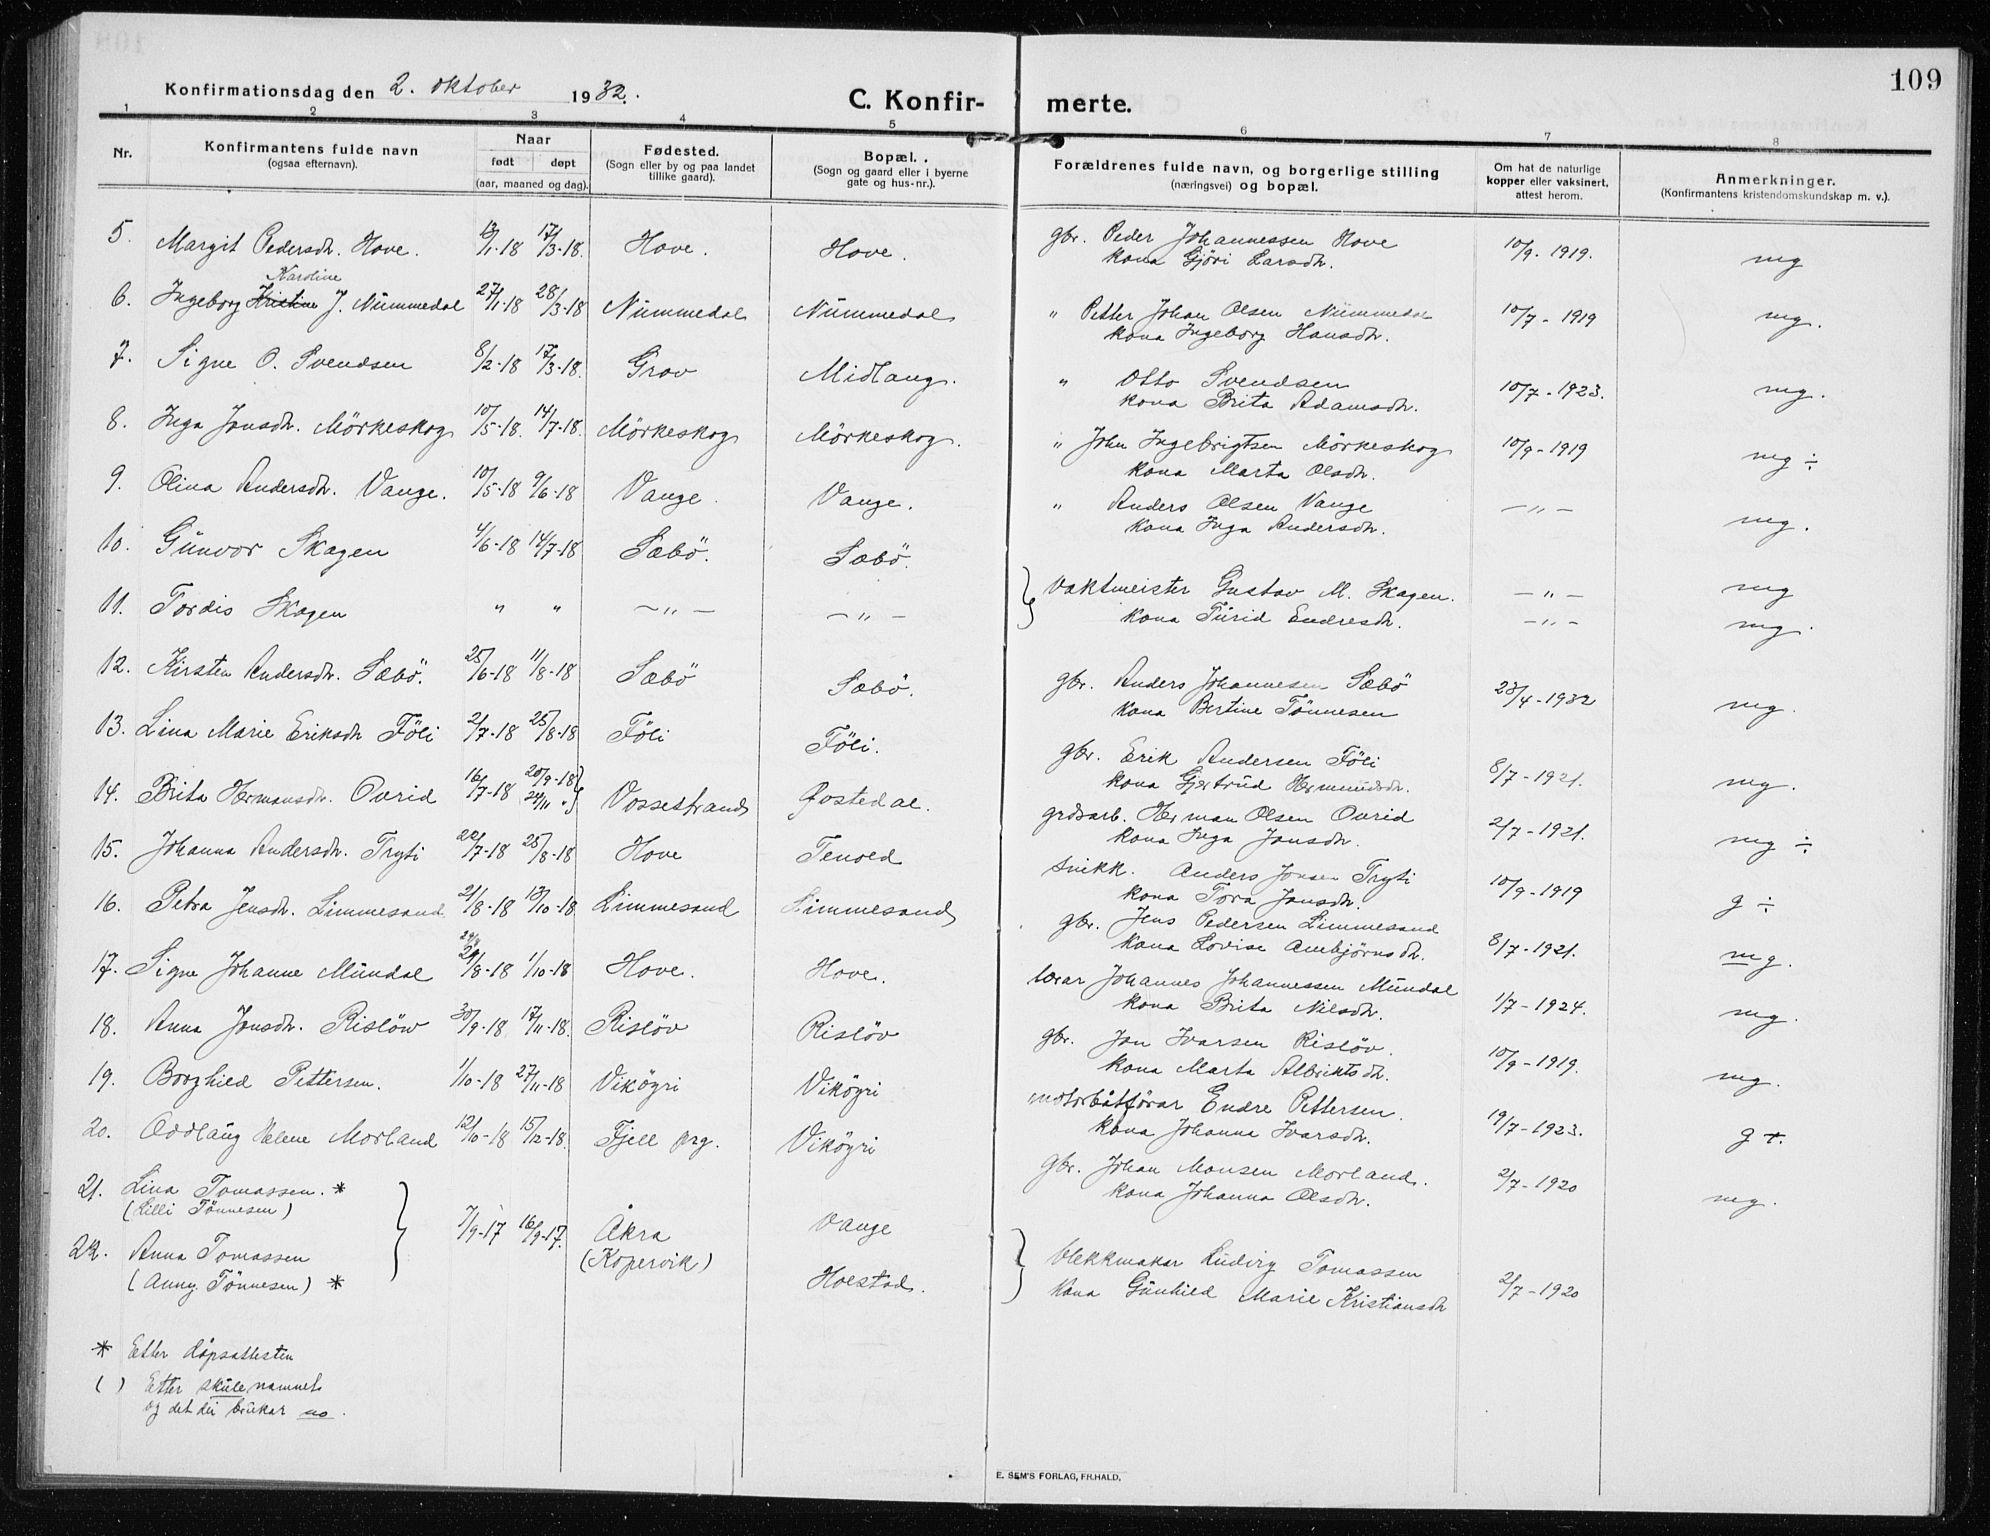 109
Konfirmationsdag den 2. oktober 1932.
C. Konfir- merte.
1 2 3 4 5 6 7 8
Nr. Konfirmantens fulde navn (ogsaa efternavn). Naar født døpt (aar, maaned og dag). Fødested. (Sogn eller by og paa landet tillike gaard). Bopæl. (Sogn og gaard eller i byerne gate og hus-nr.). Forældrenes fulde navn, og borgerlige stilling (næringsvei) og bopæl. Om hat de naturlige kopper eller vaksinert, attest herom. Anmerkninger. (Konfirmantens kristendomskundskap m. v.).
5. Margit Pedersdtr. Hove. 13/1-18 17/3-18. Hove. Hove. gbr. Peder Johannessen Hove 10/9-1919. mg
kona Gjöri Larsdtr.
Karoline
6. Ingeborg Kristine J. Nummedal 27/1-18 28/3-18 Nummedal Nummedal " Petter Johan Olsen Nummedal 10/7-1919 mg.
kona Ingeborg Hansdtr.
7. Signe O. Svendsen 8/2-18 17/3-18. Grov Midlang. " Otto Svendsen 10/7-1923. mg.
kona Brita Adamsdtr.
8. Inga Jonsdtr. Mörkeskog 10/5-18. 14/7-18. Mörkeskog Mörkeskog. " John Ingebrigtsen Mörkeskog 10/9-1919 mg ÷
kona Marta Olsdtr.
9. Olina Andersdtr. Vange. 10/5-18 9/6-18 Vange. Vange. " Anders Olsen Vange — " — mg.
kona Inga Andersdtr.
10. Gunvor Skagen 4/6-18 14/7-18 Sæbö. Sæbö. } Vaktmeister Gustav M. Skagen. — " — mg
11. Tordis Skagen " " — " — — " — kona Turid Endresdtr. — " — mg.
12. Kirsten Andersdtr. Sæbö. 25/6-18 11/8-18 Sæbö Sæbö. gbr. Anders Johannesen Sæbö 23/4-1932 mg.
kona Bertine Tönnesen
13. Lina Marie Eriksdtr Föli 2/7-18 25/8-18 Föli Föli. gbr. Erik Andersen Föli 8/7-1921. mg.
kona Gjertrud Hermundsdtr.
14. Brita Hermansdtr. Ovrid 16/7-18 20/9-18 (24/11 ") Vossestrand Jostedal. grdsarb. Herman Olsen Ovrid 2/7-1921. mg ÷
kona Inga Jonsdtr.
15. Johanna Andersdtr. Tryti 22/7-18 25/8-18 Hove Tenold snikk. Anders Jonsen Tryti 10/9-1919 g ÷
kona Tora Jonsdtr.
16. Petra Jensdtr. Limmesand 21/8-18 13/10-18 Limmesand Limmesand gbr. Jens Pedersen Limmesand 8/7-1921. mg.
kona Lovise Ambjørnsdtr.
17. Signe Johanne Mundal 29/8-18 1/10-18 Hove. Hove. lærar Johannes Johannessen Mundal 1/7-1924. mg.
kona Brita Nilsdtr.
18. Anna Jonsdtr. Rislöw 30/9-18 17/11-18. Rislöv Rislöv gbr. Jon Ivarsen Rislöv. 10/9-1919. mg.
kona Marta Albriktsdtr.
19. Borghild Pettersen. 1/10-18 27/11-18 Viköyri Viköyri motorbåtförar Endre Pettersen. 19/7-1923. g +.
kona Johanna Ivarsdtr.
20. Oddlaug Helene Morland 12/10-18 15/12-18. Fjell prg. Viköyri gbr. Johan Monsen Morland. 2/7-1920 mg.
kona Johanna Olsdtr.
21. Lina Tomassen. *
(Lilli Tönnesen) } 7/9-17 16/9-17. Åkra (Kopervik) Vange
22. Anna Tomassen } blekkmakar Ludvig Tomassen
(Anny Tönnesen) * Holstad. kona Gunhild Marie Kristiansdtr 2/7-1920
* Etter dåpsattesten
( ) Etter skulenamnet
og det dei brukar no.
E. SEM'S FORLAG, FR.HALD.